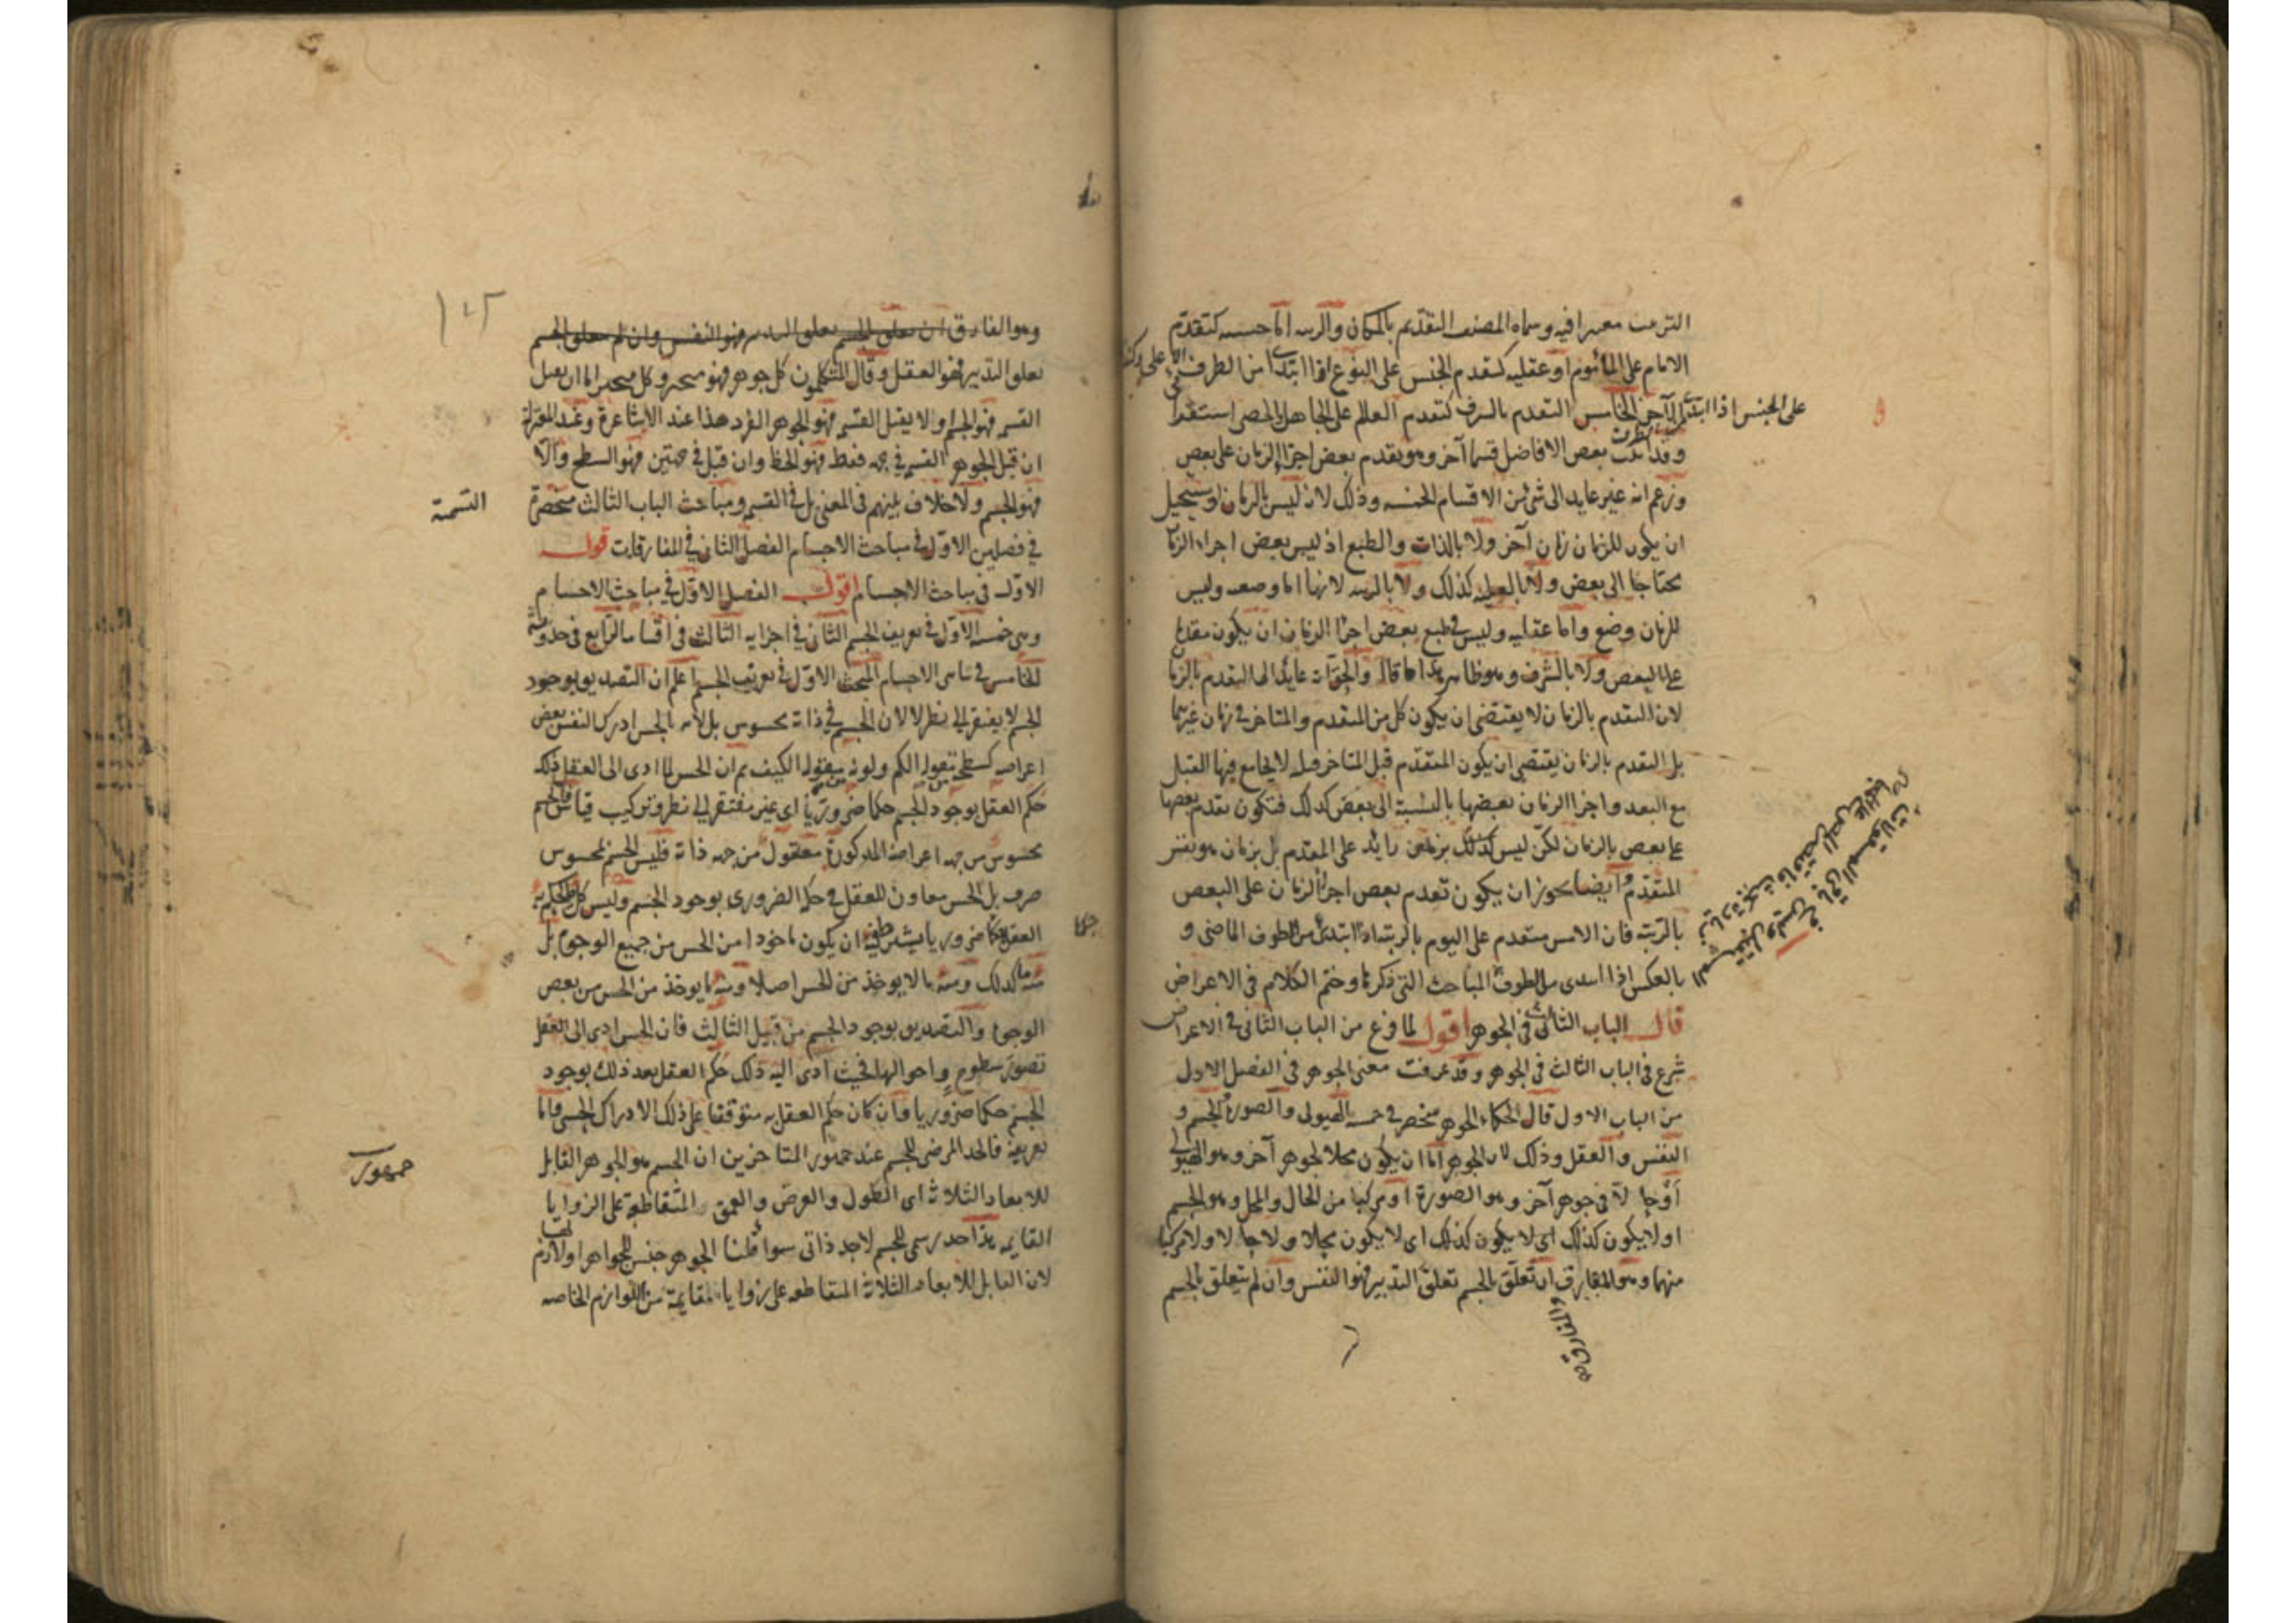 الترتيب معتبرا فيه وسماه المصنف التقدم بالمكان والرتبه اما حسيه كتقدم
الامام على المأموم او عقليه كتقدم الجنس على النوع اذا ابتدئ من الطرف
على الجنس اذا ابتدئ الآخر الخامس التقدم بالشرف كتقدم العالم على الجاهل والحصر استقرا
وقد بعض الافاضل قسما آخر وهو تقدم بعض اجزا الزمان على بعض
وزعم انه غير عايد الى شئ من الاقسام الخمسه وذلك لانه ليس بالزمان او يستحيل
ان يكون للزمان زمان آخر ولا بالذات والطبع اذ ليس بعض اجزاء الزمان
محتاجا الى بعض ولا بالعليه كذلك ولا بالرتبه لانها اما وضعيه وليس
للزمان وضع واما عقليه وليس في طبع بعض اجزا الزمان ان يكون مقدما
على البعض ولا بالشرف وهو ظاهر هذا ما قاله والجواب عايد الى التقدم بالزمان
لان التقدم بالزمان لا يقتضى ان يكون كل من المتقدم والمتاخر في زمان غيرهما
بل التقدم بالزمان يقتضى ان يكون المتقدم قبل المتاخر قبليه لا يجامع فيها القبل
مع البعد واجزا الزمان بعضها بالنسبة الى بعض كذلك فتكون تقدم بعضها
على بعض بالزمان لكن ليس كذلك بزمان زايد على المتقدم بل بزمان هو نفس
المتقدم وايضا يجوز ان يكون تقدم بعض اجزا الزمان على البعض
بالرتبه فان الامس متقدم على اليوم بالرتبه اذا ابتدئ من الطرف الماضى و
بالعكس اذا ابتدى من الطرف المباحث التى ذكرنا وختم الكلام في الاعراض
قال الباب الثالث في الجوهر اقول لما فرغ من الباب الثانى في الاعراض
شرع في الباب الثالث في الجوهر وقد عرفت معنى الجوهر في الفصل الاول
من الباب الاول قال الحكماء الجوهر منحصر في خمسه الهيولى والصورة والجسم و
النفس والعقل وذلك لان الجوهر اما ان يكون محلا لجوهر آخر وهو الهيولى
او حالا في جوهر آخر وهو الصورة او مركبا من الحال والمحل وهو الجسم
او لا يكون كذلك اى لا يكون كذلك اى لا يكون محلا ولا حالا ولا مركبا
منهما وهو المفارق ان تعلق بالجسم تعلق التدبير فهو النفس وان لم يتعلق بالجسم
والمفارق
١٠٢
وهو المفارق ان تعلق الجسم تعلق التدبير فهو النفس وان لم تعلق الجسم
تعلق التدبير فهو العقل وقال المتكلمون كل جوهر فهو متحيز وكل متحيز اما ان يقبل
القسم فهو الجسم او لا يقبل القسم فهو الجوهر الفرد هذا عند الاشاعرة وعند المعتزلة
ان قبل الجوهر القسم في جهه فقط فهو الخط وان قبل في جهتين فهو السطح والا
فهو الجسم ولا خلاف بينهم في المعنى بل في القسم ومباحث الباب الثالث منحصرة
التسمية
في فصلين الاول في مباحث الاجسام الفصل الثانى في المفارقات قوله
الاول في مباحث الاجسام اقول الفصل الاول في مباحث الاجسام
وهى خمسه الاول في تعريف الجسم الثانى في اجزايه الثالث في اقسامه الرابع في حدوثه
الخامس في تناهى الاجسام المبحث الاول في تعريف الجسم اعلم ان التصديق بوجود
الجسم لا يفتقر الى نظر لا لان الجسم في ذاته محسوس بل لانه بالحس ادرك النفس بعض
اعراضه كسطحه بمقولة الكم ولونه بمقولة الكيف ثم ان الحس لما ادى الى العقل ذلك
حكم العقل بوجود الجسم حكما ضروريا اى غير مفتقر الى نظر وتركيب قياس فالجسم
محسوس من جهه اعراضه المذكورة معقول من جهه ذاته فليس الجسم بمحسوس
صرف بل الحس معاون للعقل في حكمه الضرورى بوجود الجسم وليس كل ما يحكم به
العقل حكما ضروريا يشترط فيه ان يكون ماخوذا من الحس من جميع الوجوه بل
حكما
منه ما كذلك ومنه ما لا يوخذ من الحس اصلا ومنه ما يوخذ من الحس من بعض
الوجوه والتصديق بوجود الجسم من قبيل الثالث فان الحس ادى الى العقل
تصور سطوحه واحوالها فحيث ادى اليه ذلك حكم العقل بعد ذلك بوجود
الجسم حكما ضروريا وان كان حكم العقل به متوقفا على ذلك الادراك الحسى واما
تعريفه فالحد المرضى للجسم عند جمهور المتاخرين ان الجسم هو الجوهر القابل
جمهور
للابعاد الثلاثة اى الطول والعرض والعمق المتقاطعة على الزوايا
القايمه هذا حد رسمى للجسم لا حد ذاتى سوا قلنا الجوهر جنس للجواهر او لازم لها
لان القابل للابعاد الثلاثة المتقاطعه على زوايا قايمة من اللوازم الخاصه